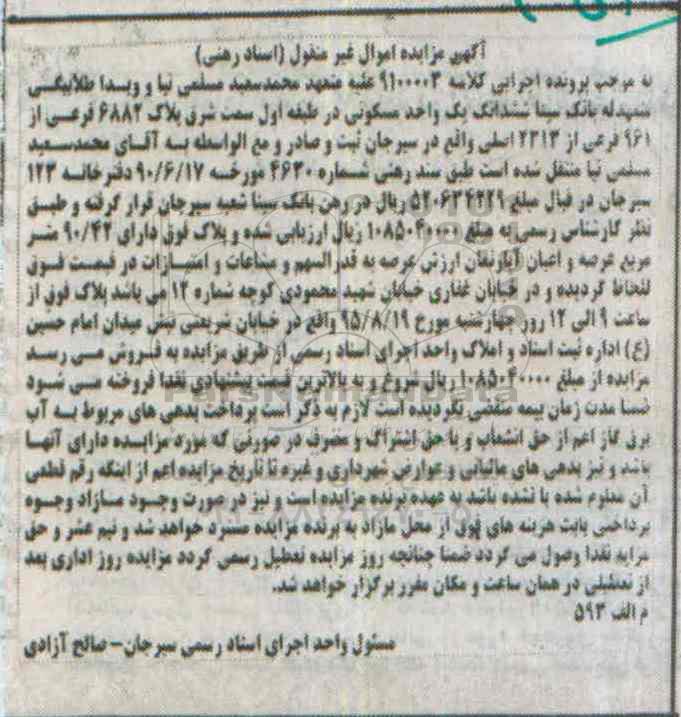 آگهی مزایده اموال غیر منقول (اسناد رهنی)
به موجب پرونده اجرایی کلاسه ۹۱۰۰۰۰۳ علیه متعهد محمدسعید مسلمی نیا و ویدا طلابیگی
متعهدله بانک سینا ششدانگ یک واحد مسکونی در طبقه اول سمت شرق پلاک ۶۸۸۲ فرعی از
۹۶۱ فرعی از ۲۳۱۳ اصلی واقع در سیرجان ثبت و صادر و مع الواسطه به آقای محمدسعید
مسلمی نیا منتقل شده است طبق سند رهنی شماره ۴۶۳۰ مورخه ۹۰/۶/۱۷ دفترخانه ۱۲۳
سیرجان در قبال مبلغ ۵۲۰۶۳۴۲۲۹ ریال در رهن بانک سینا شعبه سیرجان قرار گرفته و طبق
نظر کارشناس رسمی به مبلغ ۱۰۸۵۰۴۰۰۰۰ ریال ارزیابی شده و پلاک فوق دارای ۹۰/۴۲ متر
مربع عرصه و اعیان آپارتمان ارزش عرصه به قدرالسهم و مشاعات و امتیازات در قیمت فوق
لحاظ گردیده و در خیابان غفاری خیابان شهید محمودی کوچه شماره ۱۲ می باشد پلاک فوق از
ساعت ۹ الی ۱۲ روز چهارشنبه مورخ ۹۵/۸/۱۹ واقع در خیابان شریعتی نبش میدان امام حسین
(ع) اداره ثبت اسناد و املاک واحد اجرای اسناد رسمی از طریق مزایده به فروش می رسد
مزایده از مبلغ ۱۰۸۵۰۴۰۰۰۰ ریال شروع و به بالاترین قیمت پیشنهادی نقدا فروخته می شود
ضمنا مدت زمان بیمه منقضی گردیده است لازم به ذکر است پرداخت بدهی های مربوط به آب
برق گاز اعم از حق انشعاب و یا حق اشتراک و مصرف در صورتی که مورد مزایده دارای آنها
باشد و نیز بدهی های مالیاتی و عوارض شهرداری و غیره تا تاریخ مزایده اعم از اینکه رقم قطعی
آن معلوم شده یا نشده باشد به عهده برنده مزایده است و نیز در صورت وجود مازاد وجوه
پرداختی بابت هزینه های فوق از محل مازاد به برنده مزایده مسترد خواهد شد و نیم عشر و حق
مزایده نقدا وصول می گردد ضمنا چنانچه روز مزایده تعطیل رسمی گردد مزایده روز اداری بعد
از تعطیلی در همان ساعت و مکان مقرر برگزار خواهد شد.
م الف ۵۹۳
مسئول واحد اجرای اسناد رسمی سیرجان- صالح آزادی
ParsNamadData